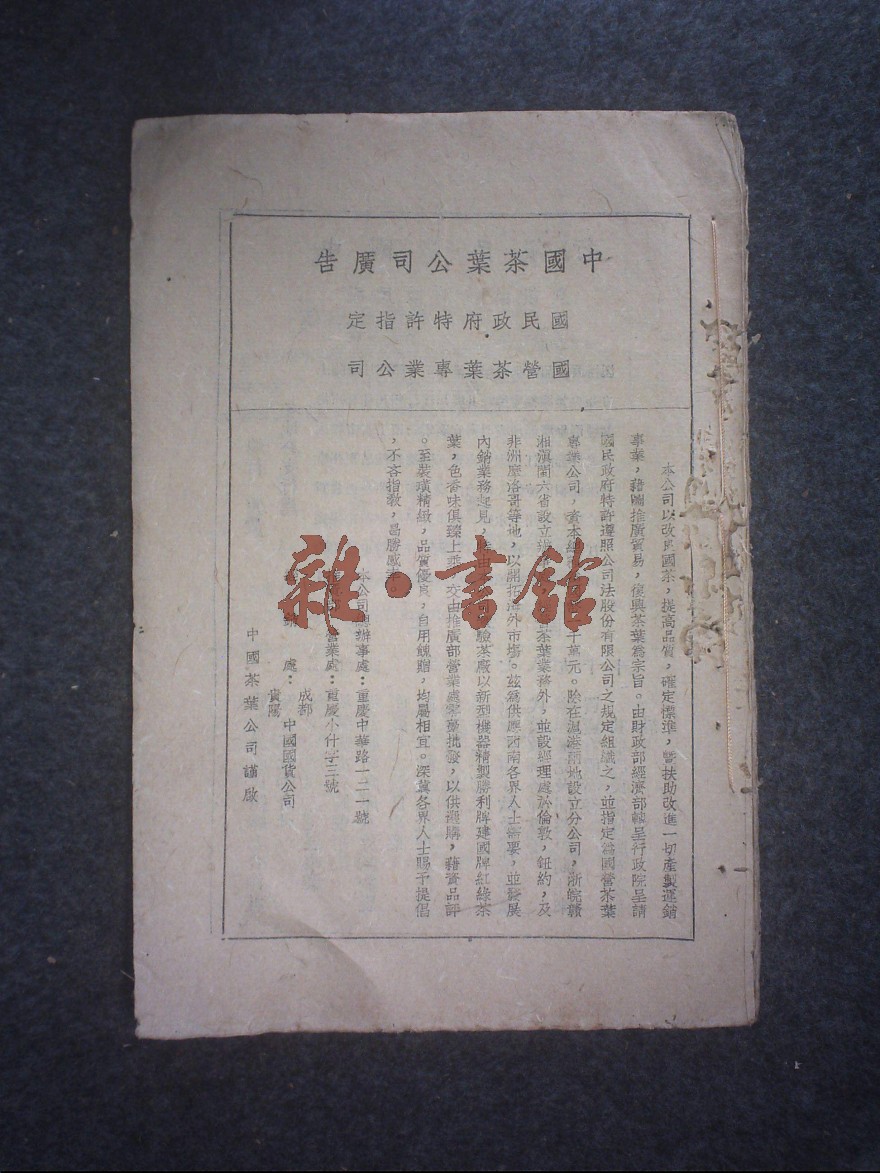 中國茶葉公司廣告
國民政府特許指定
國營茶葉專業公司
本公司以改良國茶,提高品質,確定標準,暨扶助改進一切產製運銷
事業,藉圖推廣貿易,復興茶葉爲宗旨。由財政部經濟部轉呈行政院呈請
國民政府特許遵照公司法股份有限公司之規定組織之,並指定爲國營茶葉
專業公司,資本總 千萬元。除在滬港兩地設立分公司,浙皖贛
湘滇閩六省設立 茶葉業務外,並設經理處於倫敦,紐約,及
非洲摩洛哥等地,以開拓海外市場。茲爲供應西南各界人士需要,並發展
內銷業務起見, 驗茶廠以新型機器精製勝利牌建國牌紅綠茶
葉,色香味俱臻上乘, 交由推廣部營業處零躉批發,以供選購,藉資品評
。至裝璜精緻,品質優良,自用餽贈,均屬相宜。深冀各界人士賜予提倡
,不吝指教,曷勝感
本公司總辦事處:重慶中華路一二一號
營業處:重慶小什字三號
處:成都 貴陽 中國國貨公司
中國茶葉公司謹啟
雜·書館